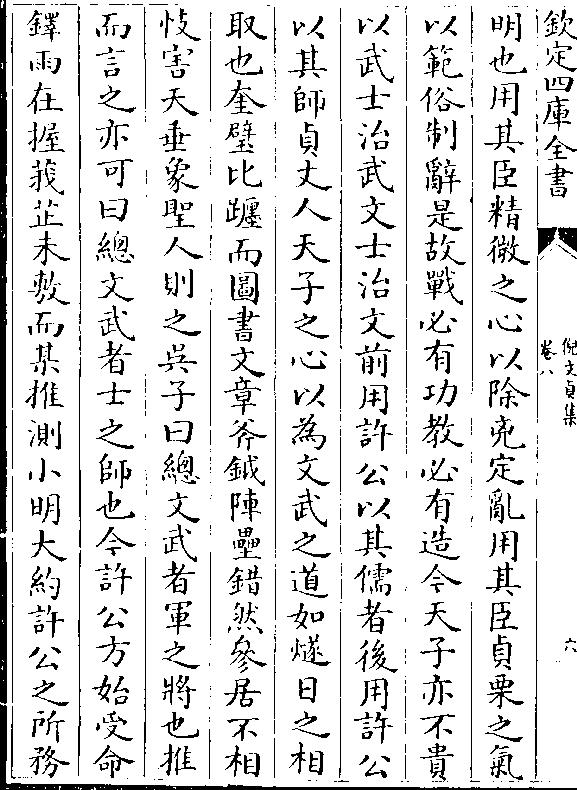 欽定四庫全書
倪文貞集
卷八
六
明也用其臣精微之心以除兇定亂用其臣貞栗之氣
以範俗制辭是故戰必有功教必有造今天子亦不貴
以武士治武文士治文前用許公以其儒者後用許公
以其師貞丈人天子之心以為文武之道如燧日之相
取也奎璧比躔而圖書文章斧鉞陣壘錯然參居不相
忮害天垂象聖人則之吳子曰總文武者軍之將也推
而言之亦可曰總文武者士之師也今許公方始受命
鐸雨在握莪芷未敷而某推測小明大約許公之所務